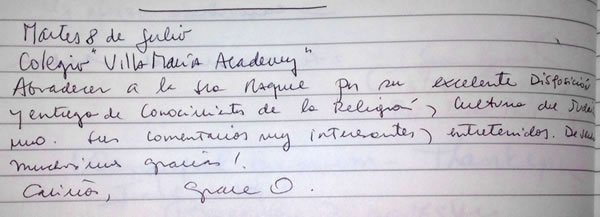 Martes 8 de Julio
Colegio "Villa María Academy"
Agradecer a la Sra Raquel por su excelente Disposición
y entrega de Conocimientos de la Religión y Cultura del Judaí
smo. Sus comentarios muy interesantes y entretenidos. De verdad
muchísimas gracias!
Cariños, Grace O.